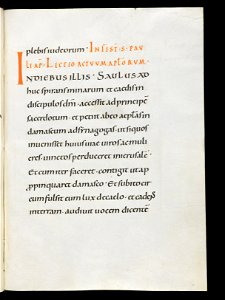 plebis iudeorum · IN FEST · S · PAU
LI AP̄ · LECTIO ACTUUM APLORUM ·
IN DIEBUS ILLIS · SAULUS AD
huc spirans minarum et caedis in
discipulos dn̄i · accessit ad principē
sacerdotum · et petiit ab eo aeplās in
damascum ad synagogas · ut si quos
invenisset huius viae viros ac muli
eres · vinctos perduceret in hierusalē ·
Et cum iter faceret · contigit ut ap
ppinquaret damasco · Et subito cir
cum fulsit eum lux de caelo · et cadens
in terram · audivit vocem dicentē